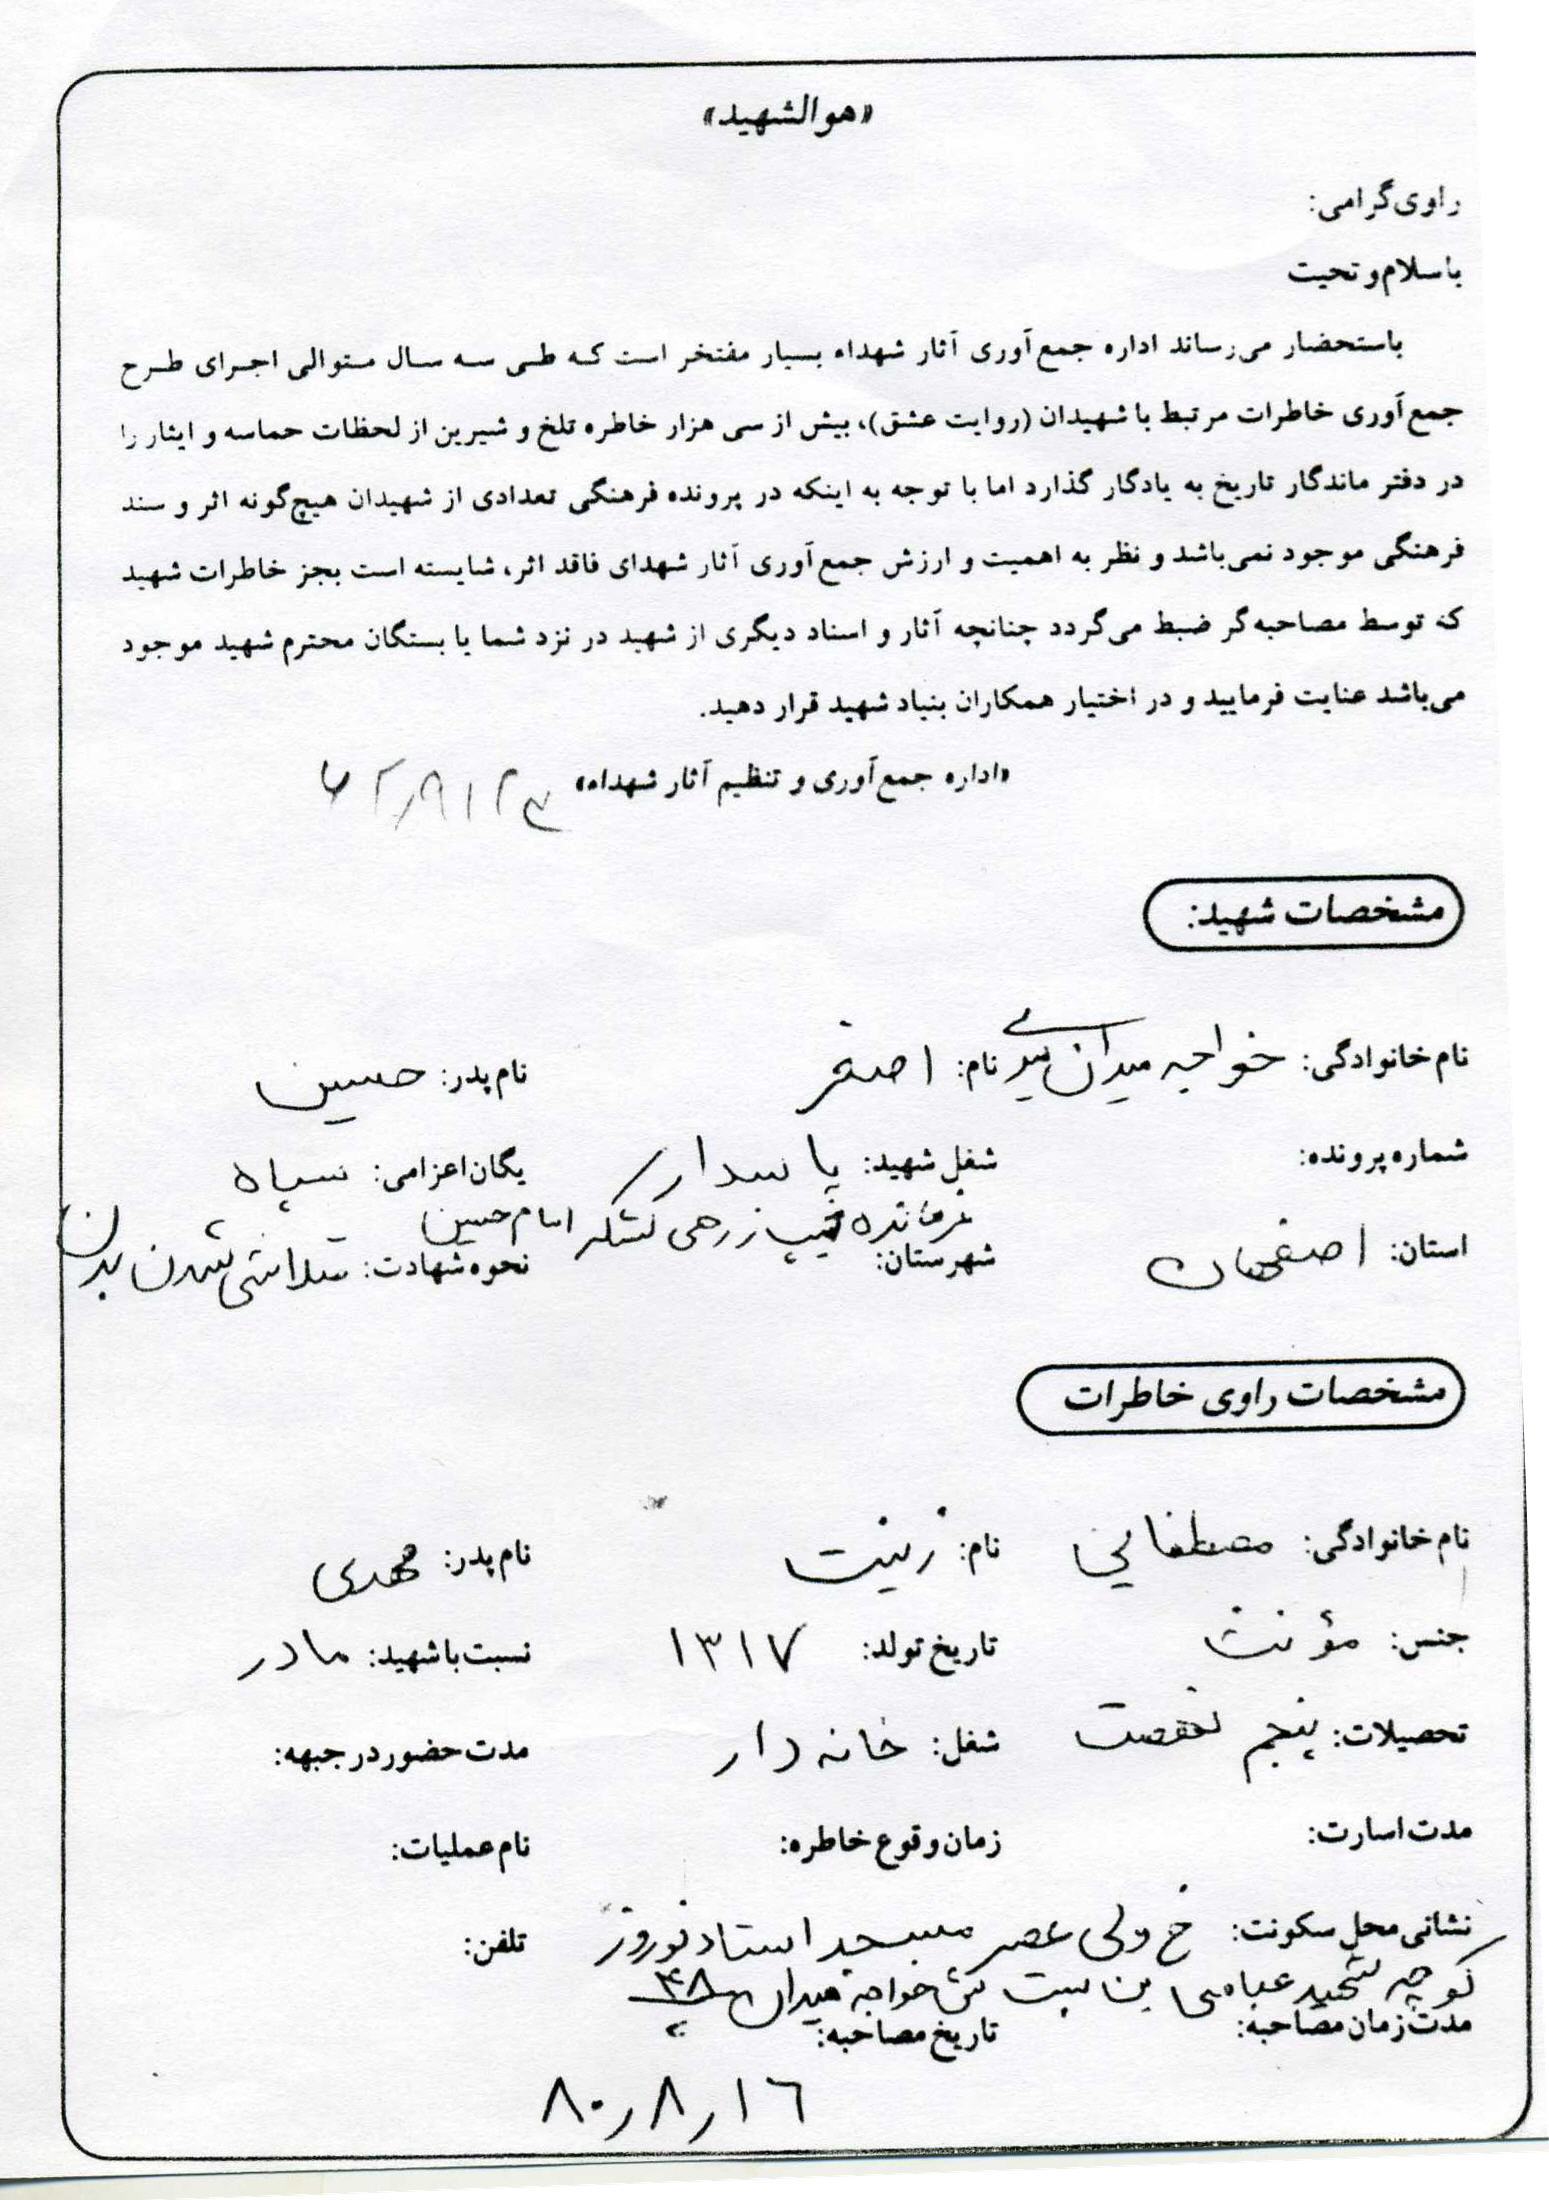 «هوالشهید»
راوی گرامی:
باسلام و تحیت
باستحضار می‌رساند اداره جمع‌آوری آثار شهداء بسیار مفتخر است که طی سه سال متوالی اجرای طرح
جمع‌آوری خاطرات مرتبط با شهیدان (روایت عشق)، بیش از سی هزار خاطره تلخ و شیرین از لحظات حماسه و ایثار را
در دفتر ماندگار تاریخ به یادگار گذارد اما با توجه به اینکه در پرونده فرهنگی تعدادی از شهیدان هیچ‌گونه اثر و سند
فرهنگی موجود نمی‌باشد و نظر به اهمیت و ارزش جمع‌آوری آثار شهدای فاقد اثر، شایسته است بجز خاطرات شهید
که توسط مصاحبه‌گر ضبط می‌گردد چنانچه آثار و اسناد دیگری از شهید در نزد شما یا بستگان محترم شهید موجود
می‌باشد عنایت فرمایید و در اختیار همکاران بنیاد شهید قرار دهید.
«اداره جمع‌آوری و تنظیم آثار شهداء»
مشخصات شهید:
نام خانوادگی: خواجه میدان نام: اصغر نام پدر: حسین
شماره پرونده: شغل شهید: پاسدار یگان اعزامی: سپاه
فرمانده تیپ زرهی لشکر امام حسین
استان: اصفهان شهرستان: نحوه شهادت: متلاشی شدن بدن
مشخصات راوی خاطرات
نام خانوادگی: مصطفایی نام: زینت نام پدر: مهدی
جنس: مؤنث تاریخ تولد: ۱۳۱۷ نسبت با شهید: مادر
تحصیلات: پنجم نهضت شغل: خانه دار مدت حضور در جبهه:
مدت اسارت: زمان وقوع خاطره: نام عملیات:
نشانی محل سکونت: خ ولی عصر مسجد استاد نوروز تلفن:
کوچه شهید عباسی بن بست ش خواجه میدان پ ۳۸
مدت زمان مصاحبه: تاریخ مصاحبه:
۱۶ر۸ر۸۰